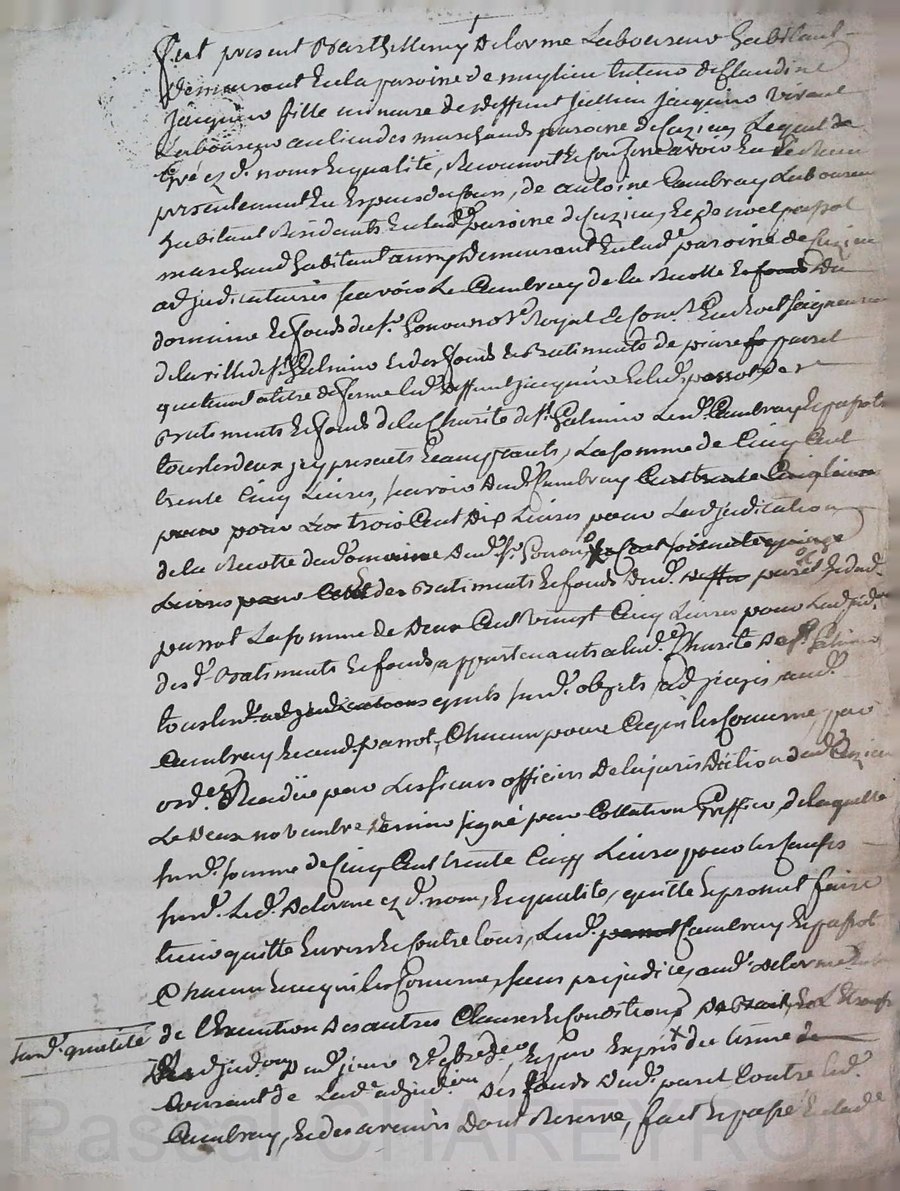 fut present Barthellemy Delorme Laboureur habitant
Demeurant en la paroisse de tuteur de Claudine
Jacquino fille mineure de deffunt Jullien Jacquino vivant
Laboureur au lieu des marchands paroisse de Cuzieu Lequel de
gré ez d. noms et qualité, Reconnoit et Confesse avoir Eu et Receu
presentement En Especes de Cours, de antoine Cambray Laboureur
habitant Residants En lad. paroisse de Cuzieu, et de noel passot
marchand habitant aussy Demeurant En lad. paroisse de Cuzieu
adjudicataires scavoir Le Cambray de la Recolte et fonds Du
domaine et fonds du Sr. Royal et
de la ville de St. Galmier et des fonds et Batiments de pierre passot
que tenoit a titre de ferme led. deffunt jacquino et led. passot de
Batiments et fonds de la Charité de St. Galmier Lesd. Cambray et passot
tous les deux jcy presents et acceptants, La somme de Cinq Cent
trente Cinq Livres, scavoir dud. Cambray Cent trente Cinq livres
pour pour La trois Cent Dix Livres pour Ladjudication
de la Recolte du domaine dud. Sr. et Cent soixante quinze
Livres pour Celle des Batiments et fonds dud. passot et dud.
passot La somme de Deux Cent vingt Cinq Livres pour Ladjud.
des d. Batiments et fonds appartenants a lad. Charité de St. Galmier
tous lesd. adjudications quils susd. objets adjugés aud.
Cambray et aud. passot, Chacun pour Ce qui les Concerne par
ord.ce Rendüe par Les sieurs officiers De la jurisdiction dud. Cuzieu
Le Deux novembre Dernier signé par Collation Greffier, de laquelle
susd. somme de Cinq Cent trente Cinq Livres pour les Causes
susd. Led. Delorme ez d. nom, et qualité, quitte et promet faire
tenir quitte Envers et Contre tous, Lesd. passot Cambray et passot
Chacun En ce qui les Concerne, sans prejudice, aud. Delorme
susd. qualité de l'Execution des autres Clauses et Conditions
adjud.on Dud. jour 2e. 9bre. der. et par Exprés du terme de
Courant de Lad. adjud.on Des fonds dud. passot Contre led.
Cambray, et des avenirs Dont Reserve, fait et passé En lad.
Pascal CHAREYRON